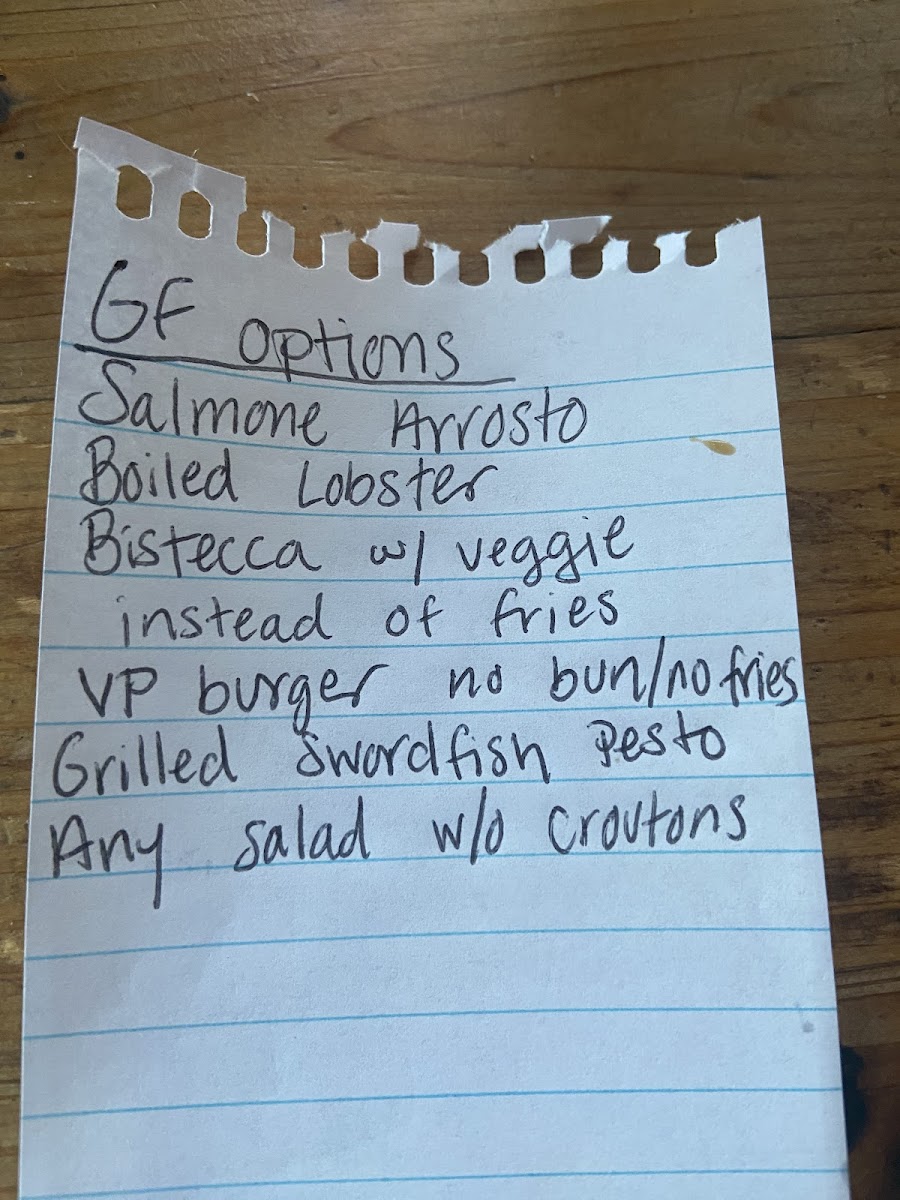 GF Options
Salmone Arrosto
Boiled Lobster
Bistecca w/ veggie
instead of fries
VP burger no bun/no fries
Grilled Swordfish Pesto
Any salad w/o croutons